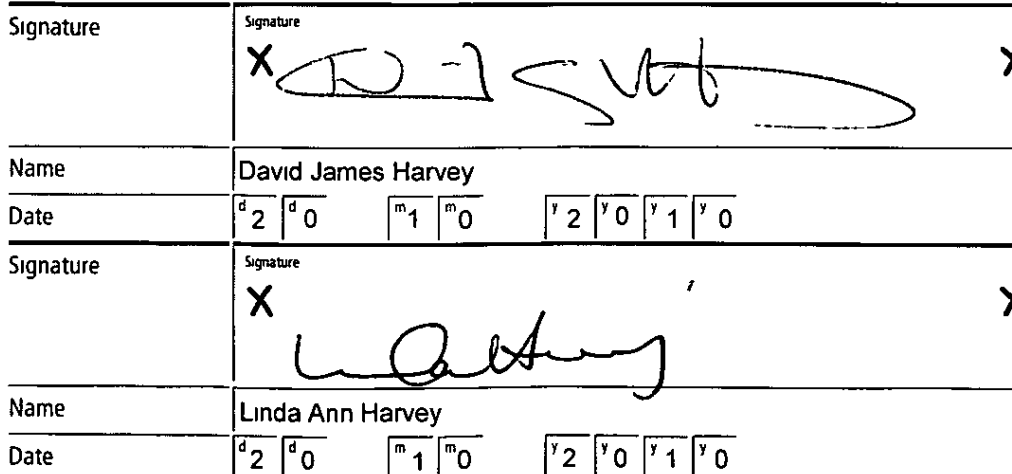 Signature
Signature
X X
Name David James Harvey
Date d2 d0 m1 m0 y2 y0 y1 y0
Signature
Signature
X X
Name Linda Ann Harvey
Date d2 d0 m1 m0 y2 y0 y1 y0